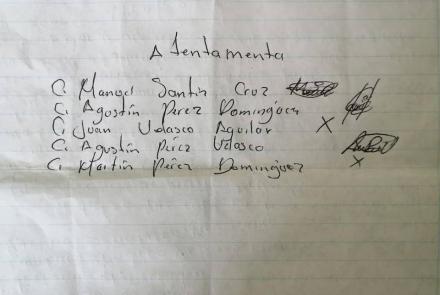 Atentamenta
C. Manuel Santin Cruz
C. Agustín Perez Domínguez
C. Juan Velasco Aguilar X
C. Agustín Pérez Velasco
C. Martin Peréz Dominguez X